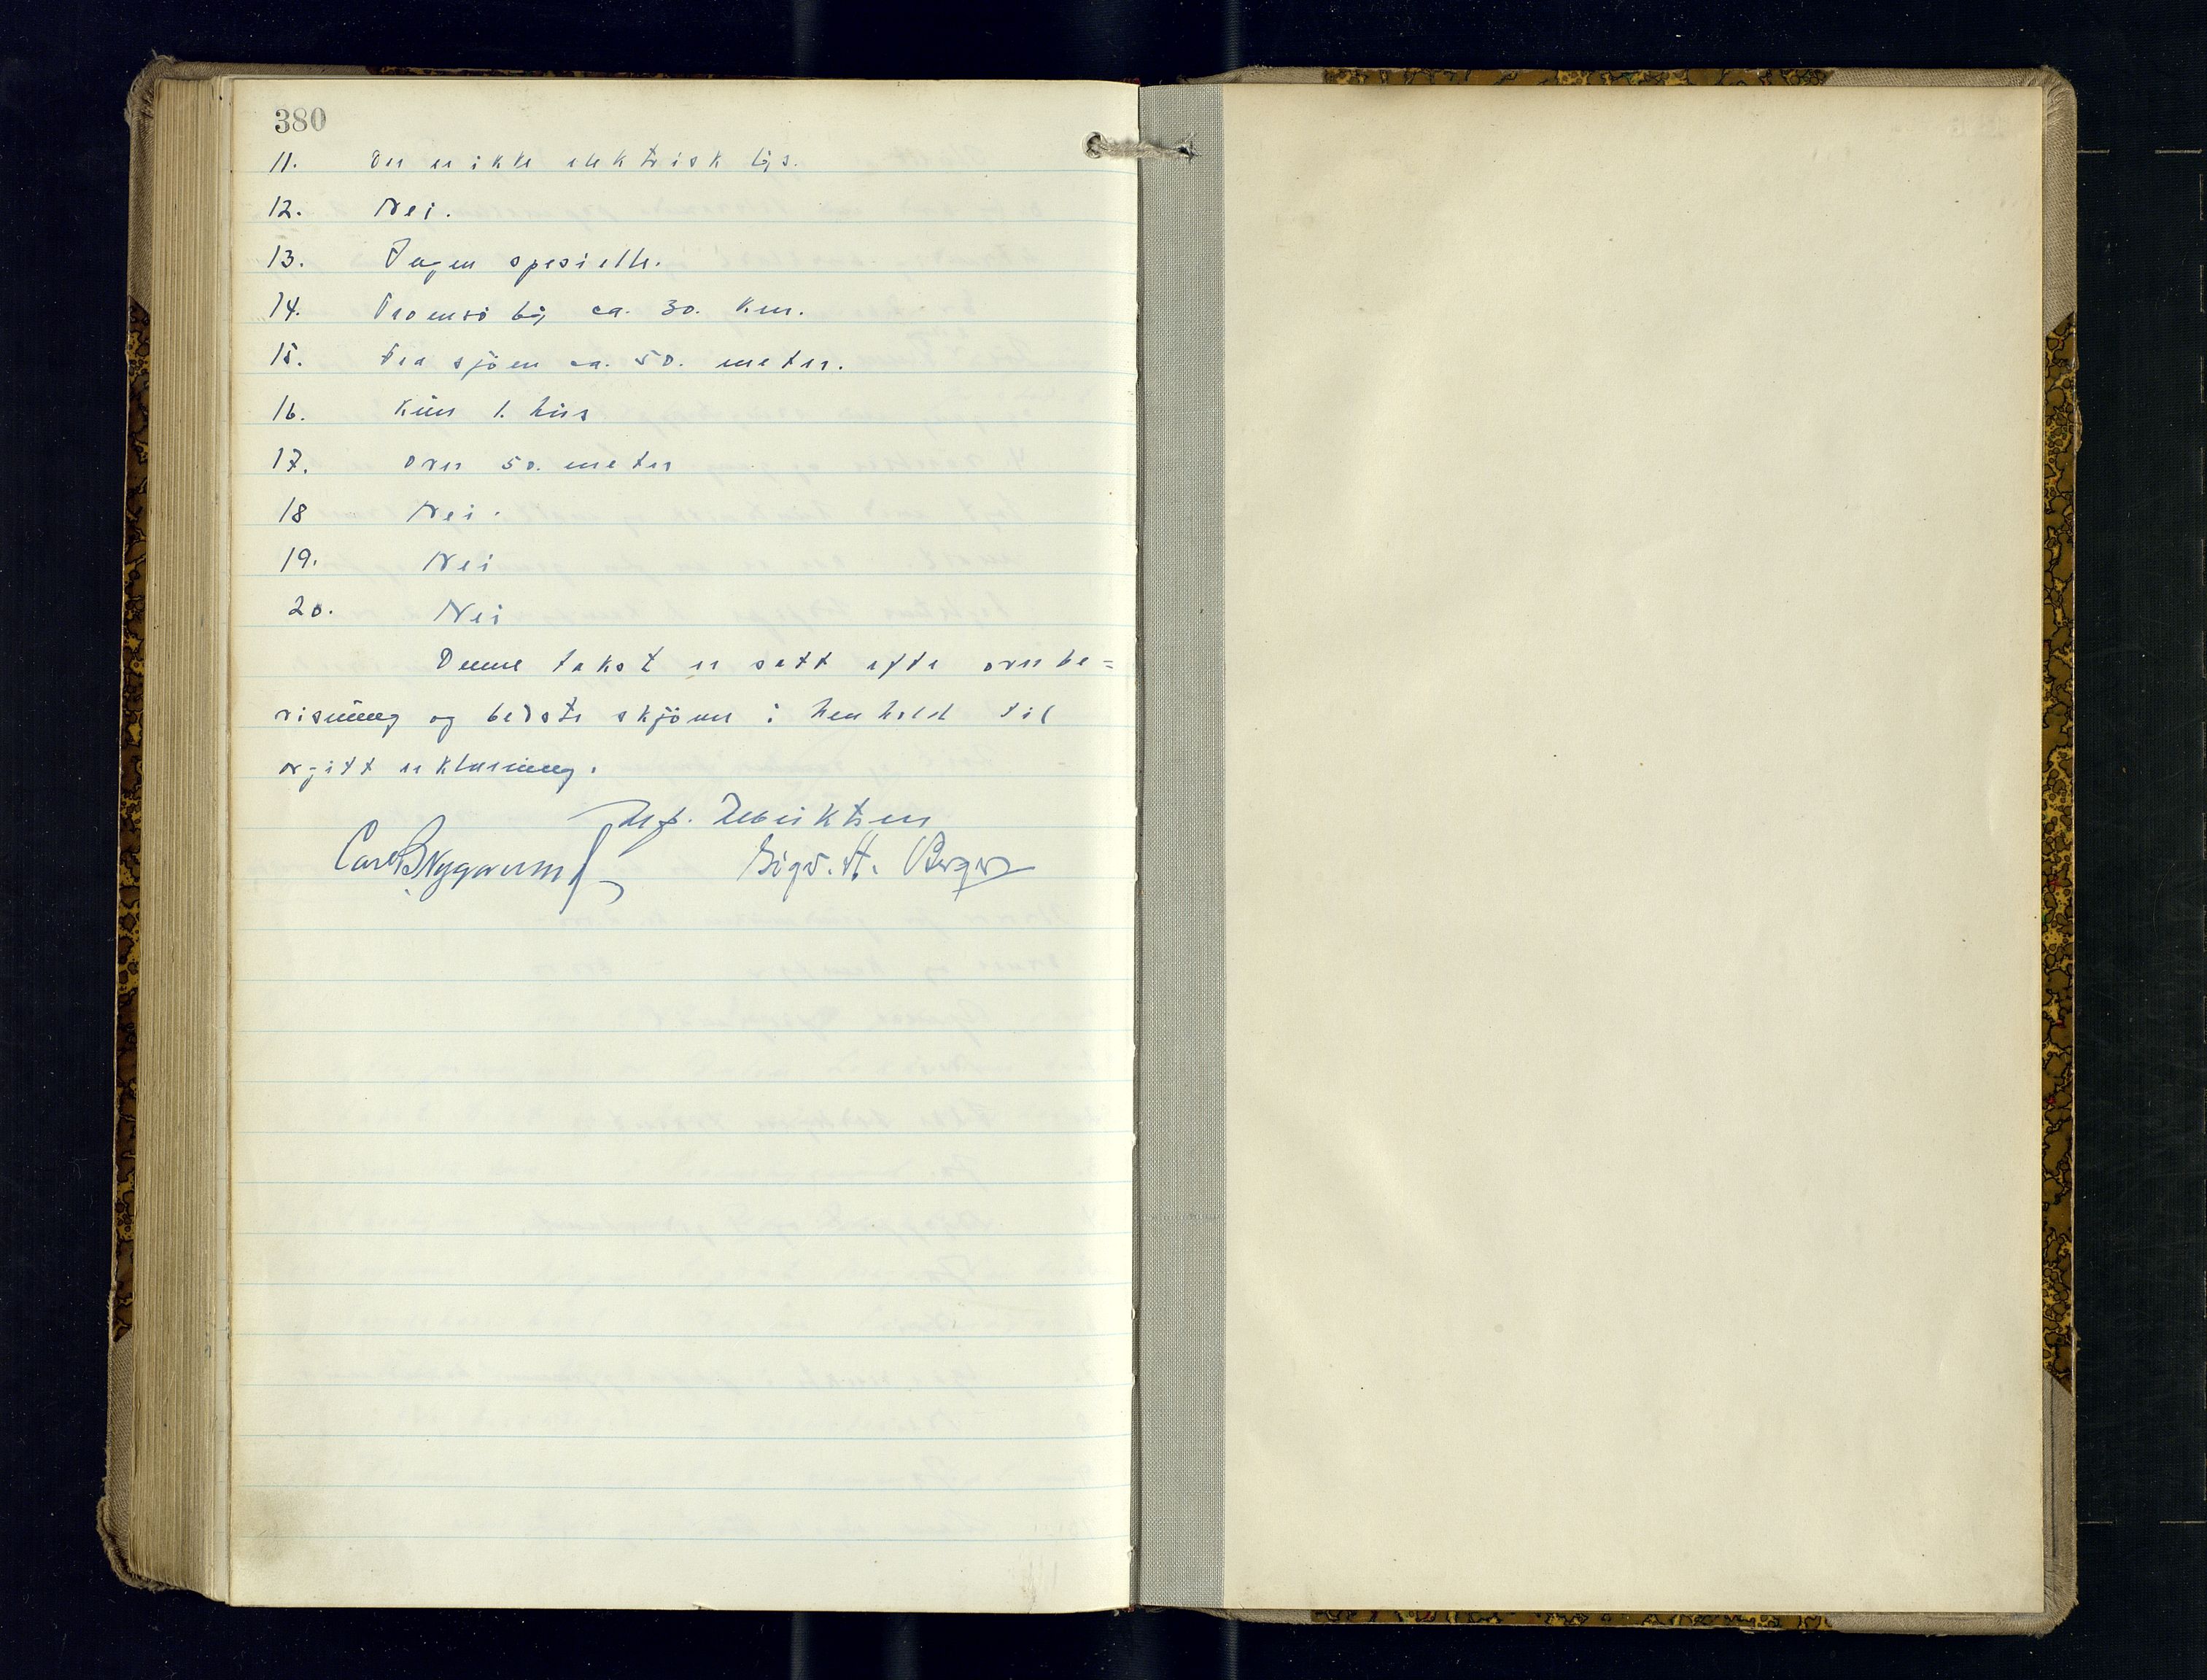 380
11. Der er ikke elektrisk lys.
12. Nei.
13. Ingen spesielle.
14. Tromsö by ca. 30. km.
15. Fra sjöen ca. 50. meter.
16. Kun 1. hus
17. Over 50. meter
18 Nei.
19. Nei
20. Nei
Denne takst er satt efte overbe=
visning og bedste skjönn i henhold til
avgitt erklæring.
Carl Nygaard
Sigv. H. Berger